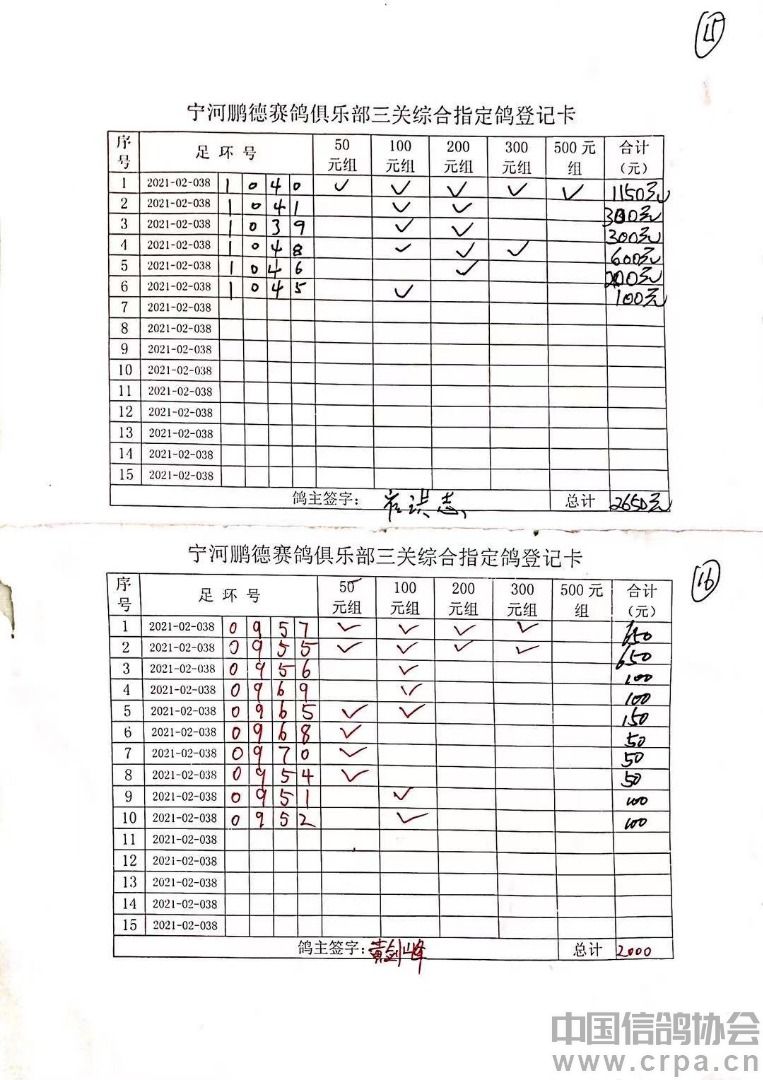 15
宁河鹏德赛鸽俱乐部三关综合指定鸽登记卡
序号 足环号 50元组 100元组 200元组 300元组 500元组 合计（元）
1 2021-02-038 1 0 4 0 ✓ ✓ ✓ ✓ ✓ 1150元
2 2021-02-038 1 0 4 1 ✓ ✓ 300元
3 2021-02-038 1 0 3 9 ✓ ✓ 300元
4 2021-02-038 1 0 4 8 ✓ ✓ ✓ 600元
5 2021-02-038 1 0 4 6 ✓ 200元
6 2021-02-038 1 0 4 5 ✓ 100元
7 2021-02-038
8 2021-02-038
9 2021-02-038
10 2021-02-038
11 2021-02-038
12 2021-02-038
13 2021-02-038
14 2021-02-038
15 2021-02-038
鸽主签字： 总计 2650元
宁河鹏德赛鸽俱乐部三关综合指定鸽登记卡
16
序号 足环号 50元组 100元组 200元组 300元组 500元组 合计（元）
1 2021-02-038 0 9 5 7 ✓ ✓ ✓ ✓ 650
2 2021-02-038 0 9 5 5 ✓ ✓ ✓ ✓ 650
3 2021-02-038 0 9 5 6 ✓ 100
4 2021-02-038 0 9 6 9 ✓ 100
5 2021-02-038 0 9 6 5 ✓ ✓ 150
6 2021-02-038 0 9 6 8 ✓ 50
7 2021-02-038 0 9 7 0 ✓ 50
8 2021-02-038 0 9 5 4 ✓ 50
9 2021-02-038 0 9 5 1 ✓ 100
10 2021-02-038 0 9 5 2 ✓ 100
11 2021-02-038
12 2021-02-038
13 2021-02-038
14 2021-02-038
15 2021-02-038
鸽主签字：黄剑峰 总计 2000
中国信鸽协会
www.crpa.cn